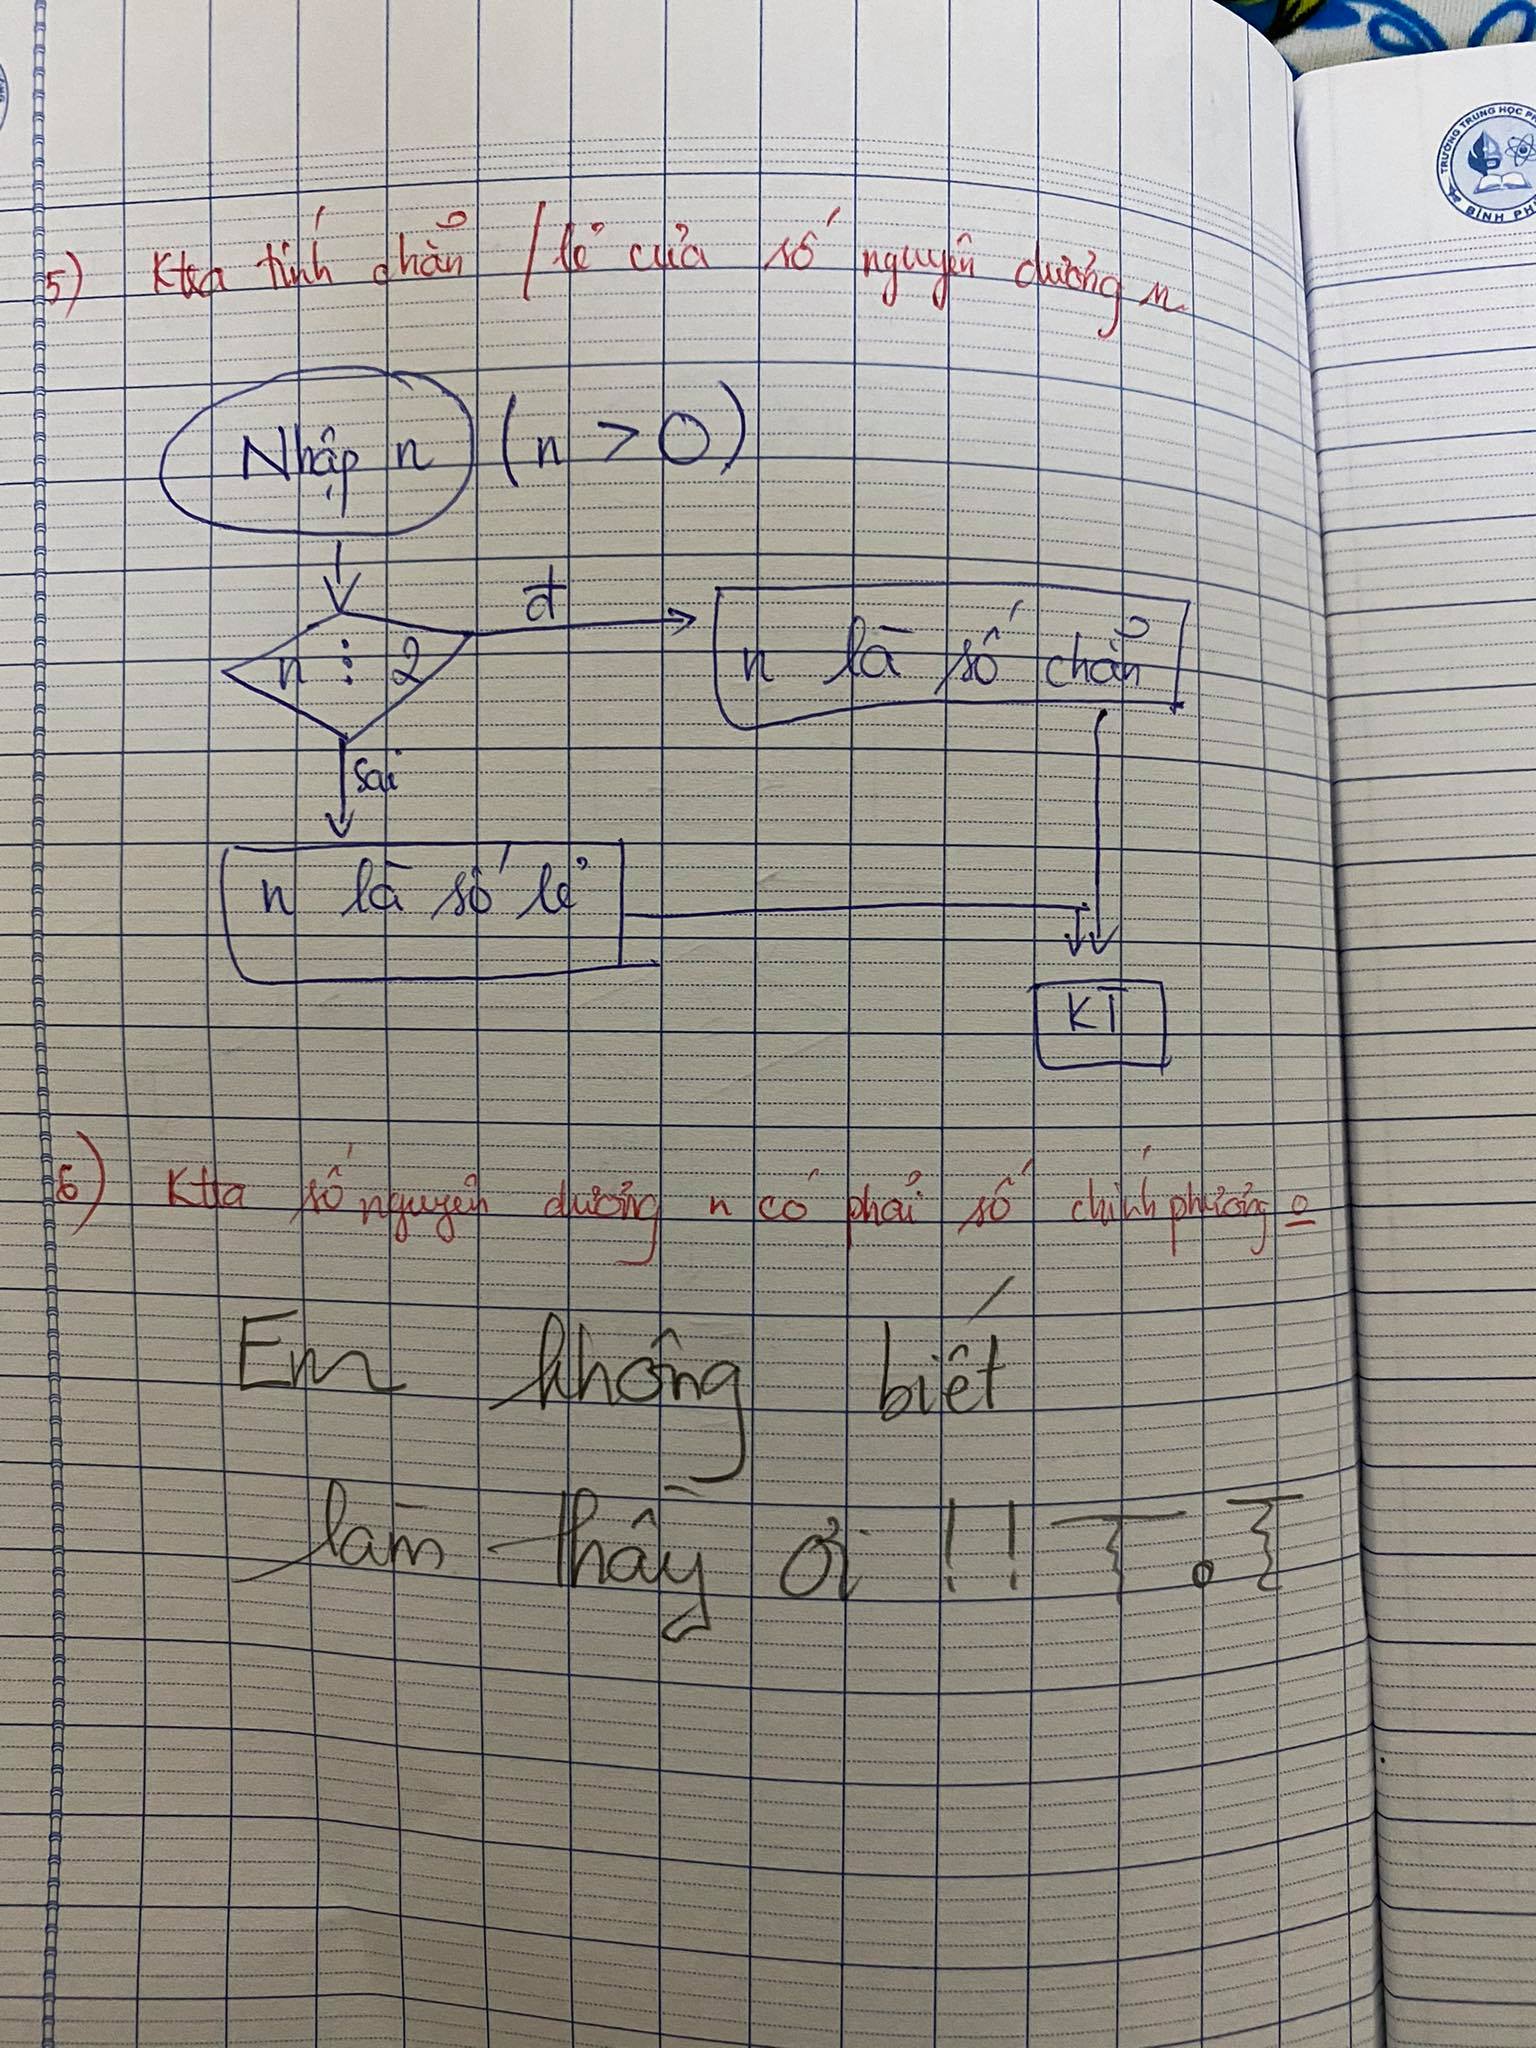 TRƯỜNG TRUNG HỌC PH
BÌNH PH
5) Ktra tính chẳn / lẻ của số nguyên dương n
Nhập n (n > 0)
n ⋮ 2
đ
n là số chẳn
sai
n là số lẻ
KT
6) Ktra số nguyên dương n có phải số chính phương o
Em không biết
làm thầy ơi !! T.T